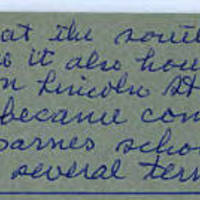 at the sout
it also hou
n Lincoln St
became com
barnes scho
several ter